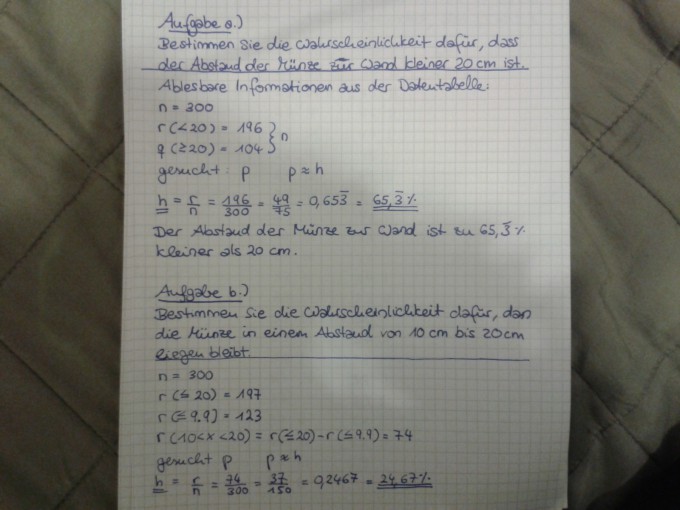 Aufgabe a.)
Bestimmen Sie die Wahrscheinlichkeit dafür, dass
der Abstand der Münze zur Wand kleiner 20 cm ist.
Ablesbare Informationen aus der Datentabelle:
n = 300
r (<20) = 196
q (≥20) = 104 } n
gesucht: p p ≈ h
h = r/n = 196/300 = 49/75 = 0,653̅ = 65,3̅ %
Der Abstand der Münze zur Wand ist zu 65,3̅ %
kleiner als 20 cm.
Aufgabe b.)
Bestimmen Sie die Wahrscheinlichkeit dafür, dass
die Münze in einem Abstand von 10 cm bis 20 cm
liegen bleibt.
n = 300
r (≤ 20) = 197
r (≤ 9.9) = 123
r (10<x<20) = r(≤20) - r(≤9.9) = 74
gesucht p p ≈ h
h = r/n = 74/300 = 37/150 = 0,2467 = 24,67 %